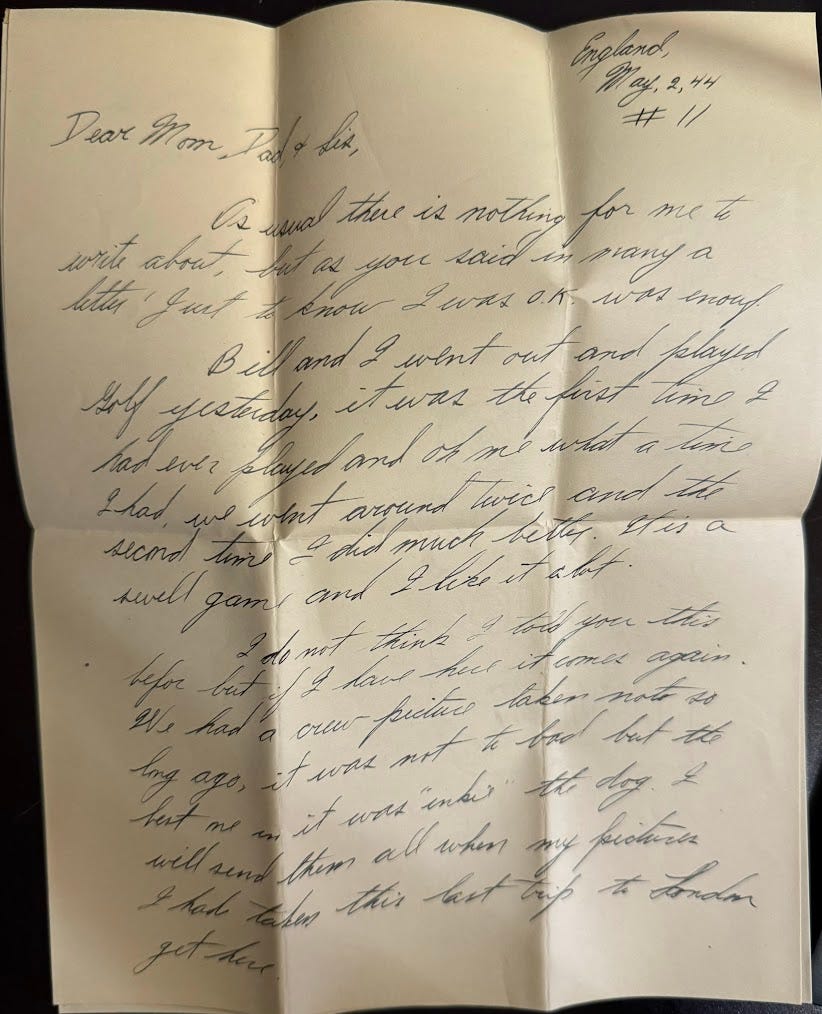 England,
May, 2, 44
# 11
Dear Mom, Dad, & Sis,
As usual there is nothing for me to
write about, but as you said in many a
letter "Just to know I was O.K. was enough.
Bill and I went out and played
Golf yesterday, it was the first time I
had ever played and oh me what a time
I had, we went around twice and the
second time I did much better. It is a
swell game and I like it a lot.
I do not think I told you this
befor but if I have here it comes again.
We had a crew picture taken not so
long ago, it was not to bad but the
best one in it was "inkie" the dog. I
will send them all when my pictures
I had taken this last trip to London
get here.